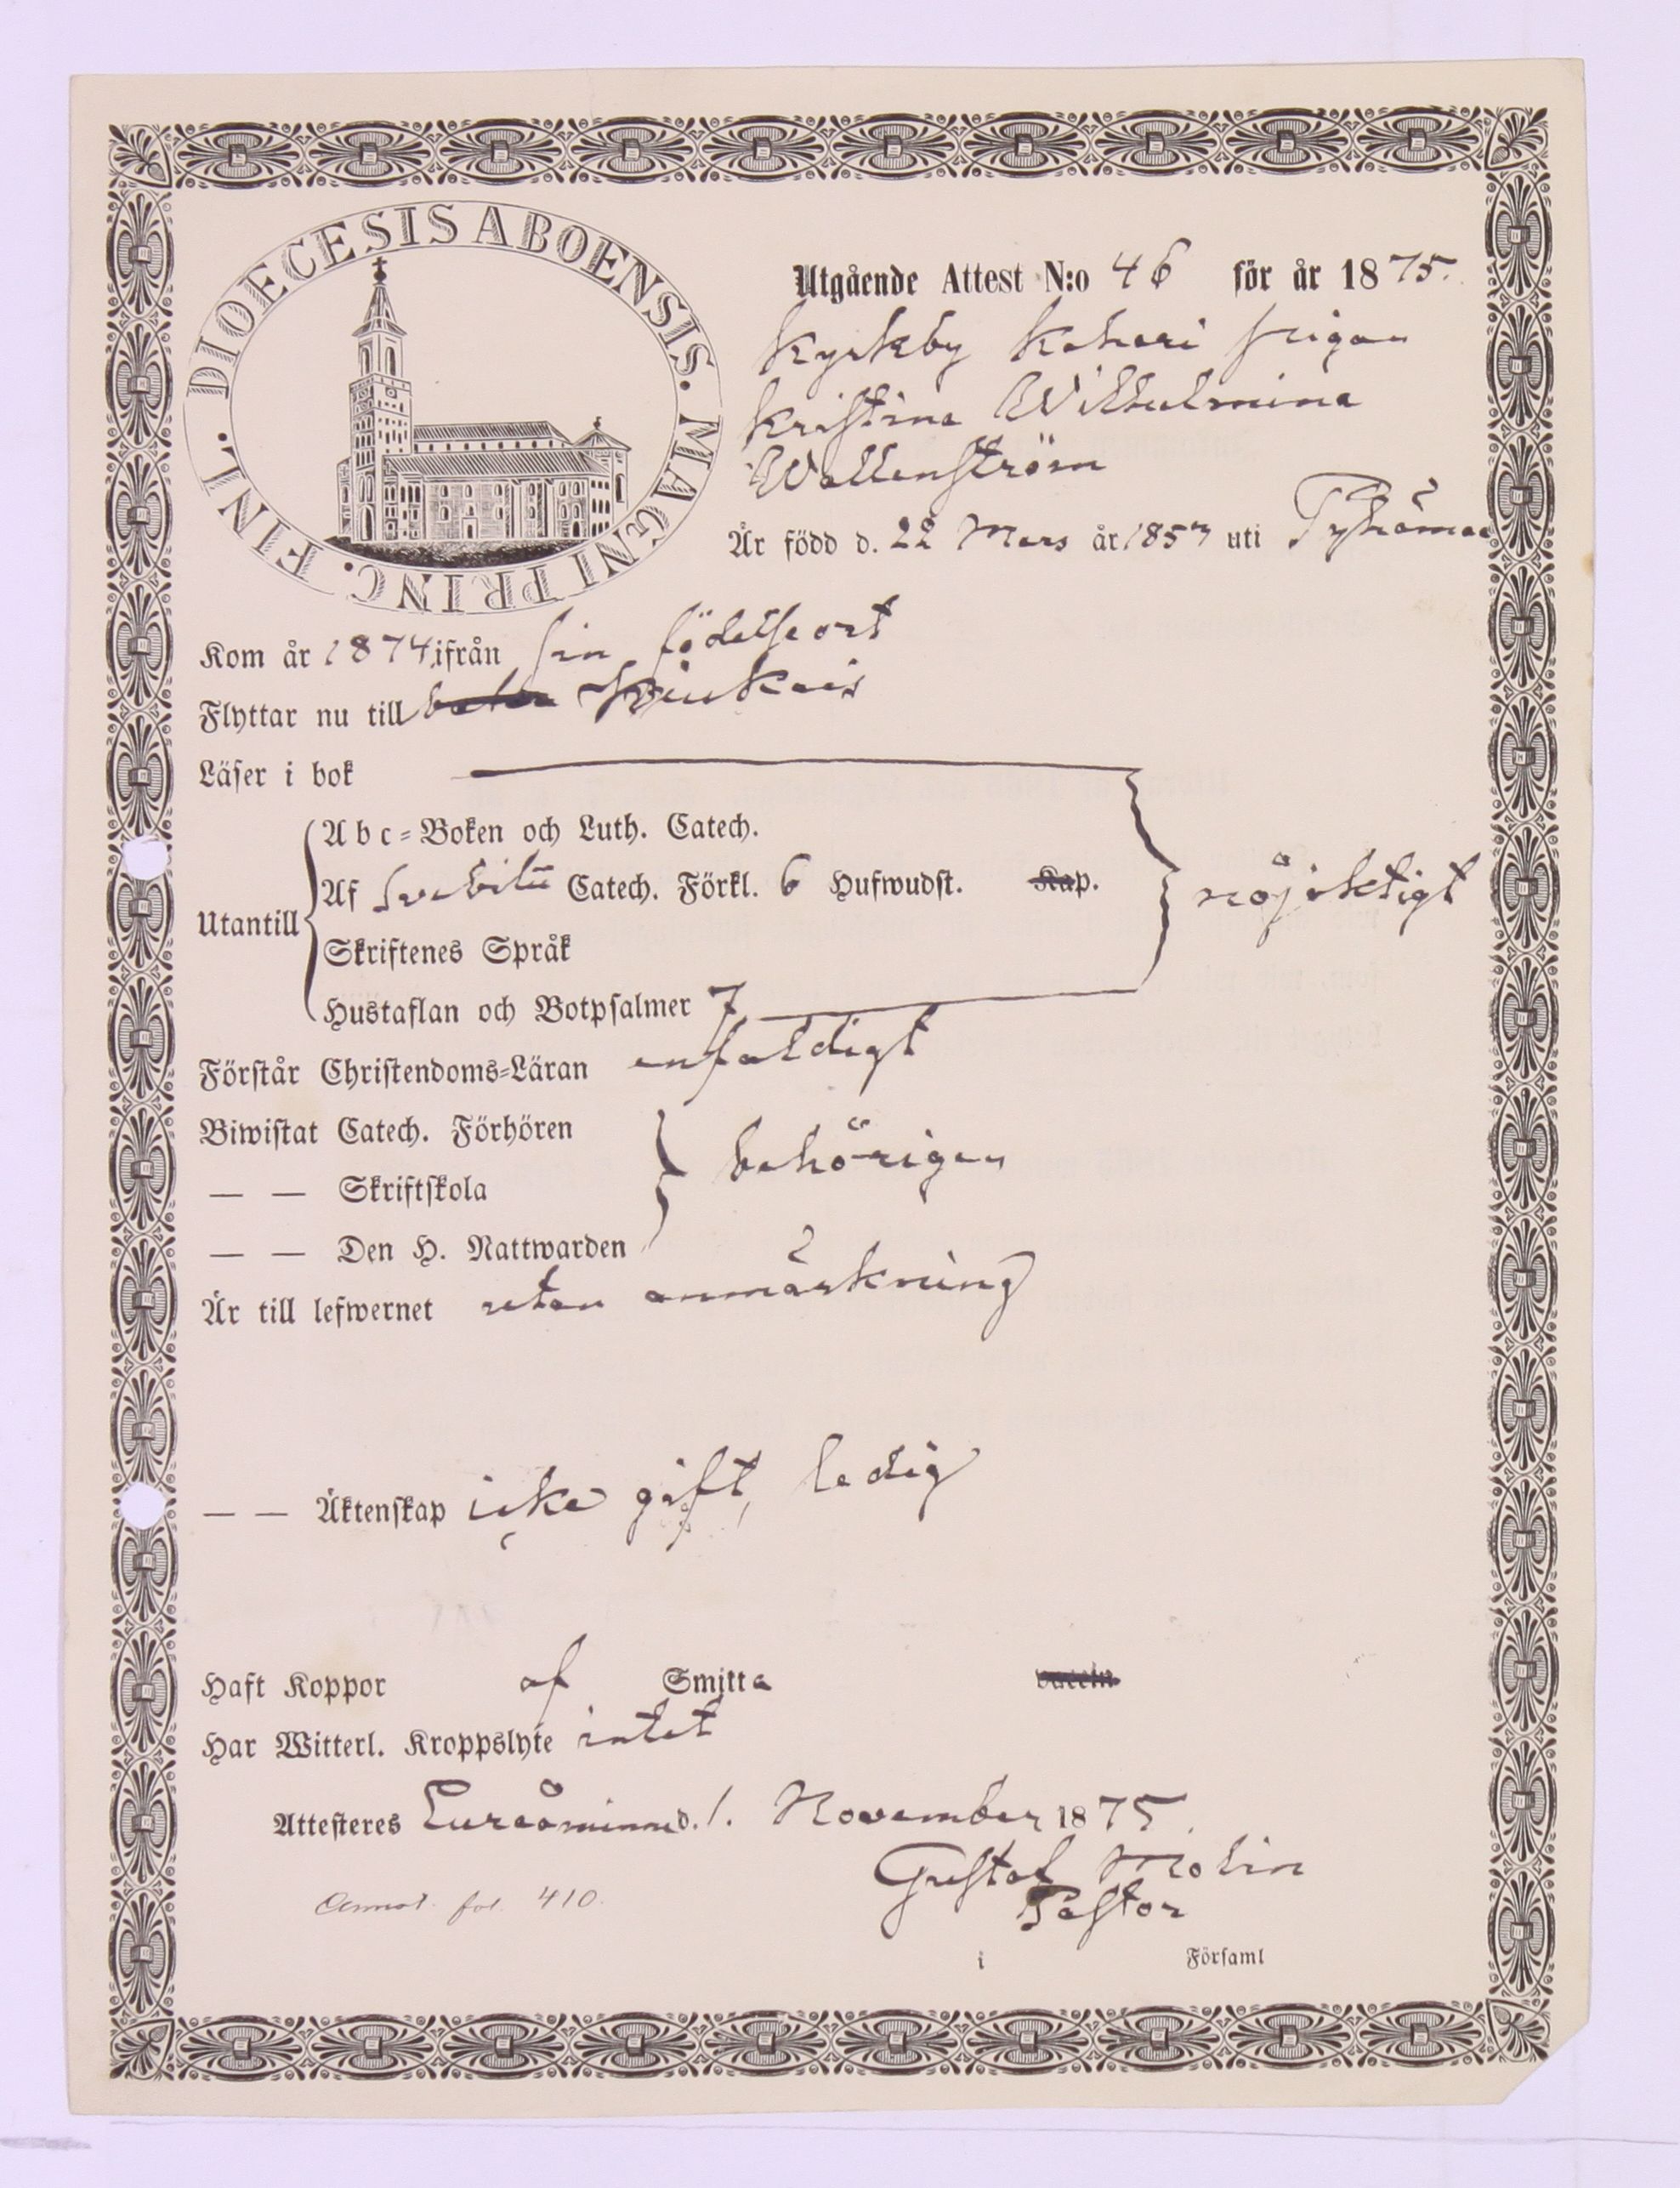 DIOECESIS ABOENSIS. MAGNI PRINC. FINL.
Utgående Attest N:o 46 för år 1875.
Kyrkby Kahari pigan
Kristina Wilhelmina
Wallenström
Är född d. 22 Mars år 1857 uti Pyhämaa
Kom år 1874 ifrån sin födelseort
Flyttar nu till Kjukais
Läser i bok
Abc-Boken och Luth. Catech.
Af Svebilii Catech. Förkl. 6 Hufwudst. Kap. nöjaktigt
Utantill
Skriftenes Språk
Hustaflan och Botpsalmer 7
Förstår Christendoms-Läran enfaldigt
Biwistat Catech. Förhören
— — Skriftskola behörigen
— — Den H. Nattwarden
Är till lefwernet utan anmärkning
— — Äktenskap icke gift, ledig
Haft Koppor af Smitta vaccin
Har Witterl. Kroppslyte intet
Attesteres Euraåminne d. 1. November 1875.
Gustaf Molin
Pastor
Annot. fol. 410.
i Församl